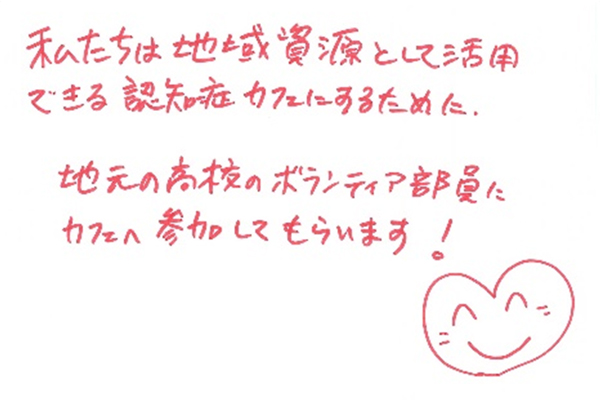 私たちは地域資源として活用
できる認知症カフェにするために、
地元の高校のボランティア部員に
カフェへ参加してもらいます!